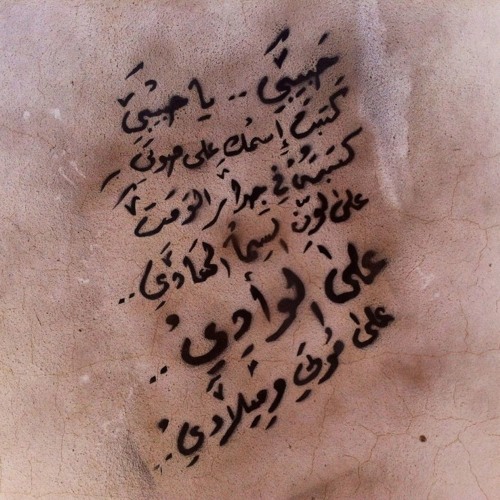 حَبيبَتي .. يا حَبيبَتي
كَتَبتُ إسمُكِ على صوتي
كتبتهُ في جدار الوَقت
على لَونِ السِما الهادي ..
على الوادِي ..
على مُوتي وميلادي ..